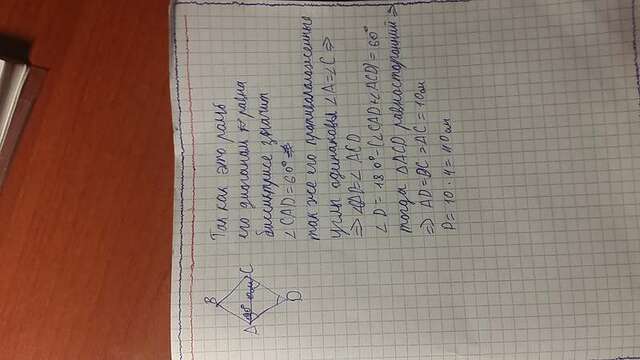 B
A C
D
Так как это ромб
его диагонам равна
биссиктрисе значит
∠CAD = 60°
так же его противоположенные
углы одинаковы ∠A=∠C ⇒
⇒ ∠ ∠ ACD
∠D = 180°-(∠CAD+∠ACD) = 60°
тогда ΔACD равносторонний ⇒
⇒ AD = DC = AC = 10см
P = 10 · 4 = 40см